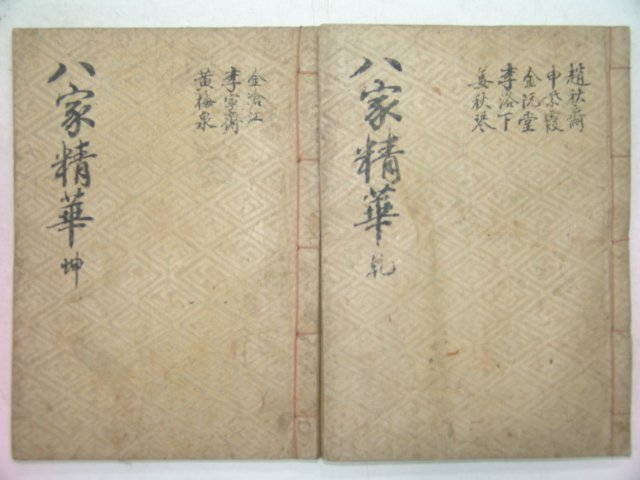 八家精華 乾
趙秋齋
申紫霞
金阮堂
李洛下
姜秋琴
八家精華 坤
金滄江
李寧齋
黄梅泉